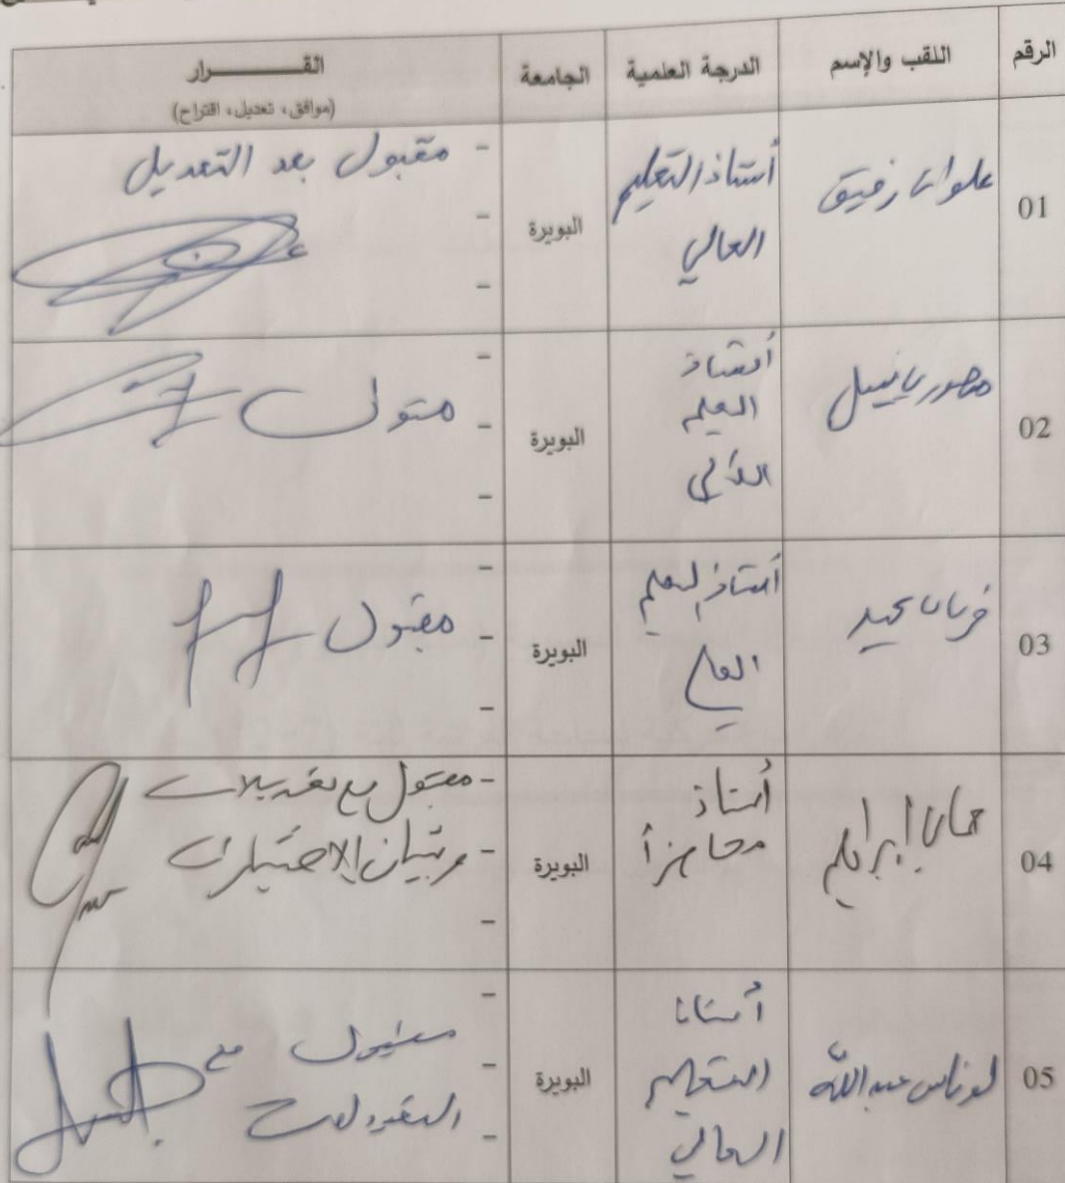 الرقم
اللقب والإسم
الدرجة العلمية
الجامعة
القــــــرار
(موافق، تعديل، اقتراح)
01
علوان رفيق
أستاذ التعليم
العالي
البويرة
- مقبول بعد التعديل
-
-
02
منصوري نبيل
أستاذ
التعليم
العالي
البويرة
-
- مقبول
-
03
فرنان مجيد
أستاذ التعليم
العالي
البويرة
-
- مقبول
-
04
إبراهيم
أستاذ
محاضر أ
البويرة
- مقبول مع تعديلات
- وتبيان الاختبارات
-
05
لوناس عبد الله
أستاذ
التعليم
العالي
البويرة
-
- مقبول مع
-